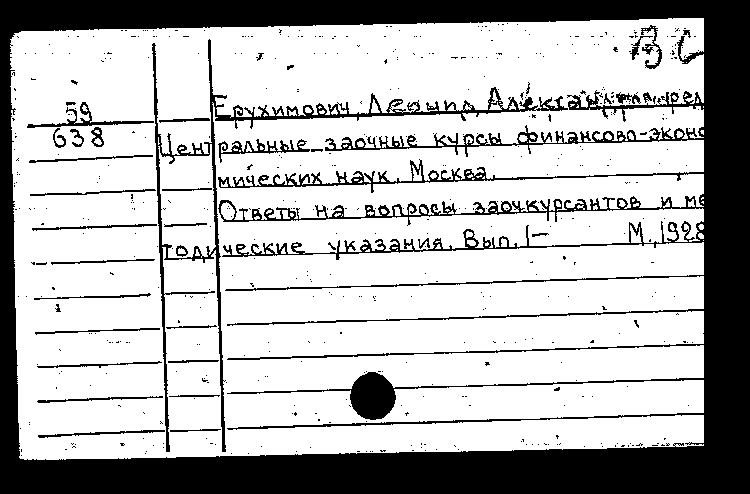 59
638
Ерухимович, Леонид, Александрович, ред
Центральные заочные курсы финансово-эконо
мических наук. Москва.
Ответы на вопросы заочкурсантов и ме
тодические указания. Вып. 1— М., 1928